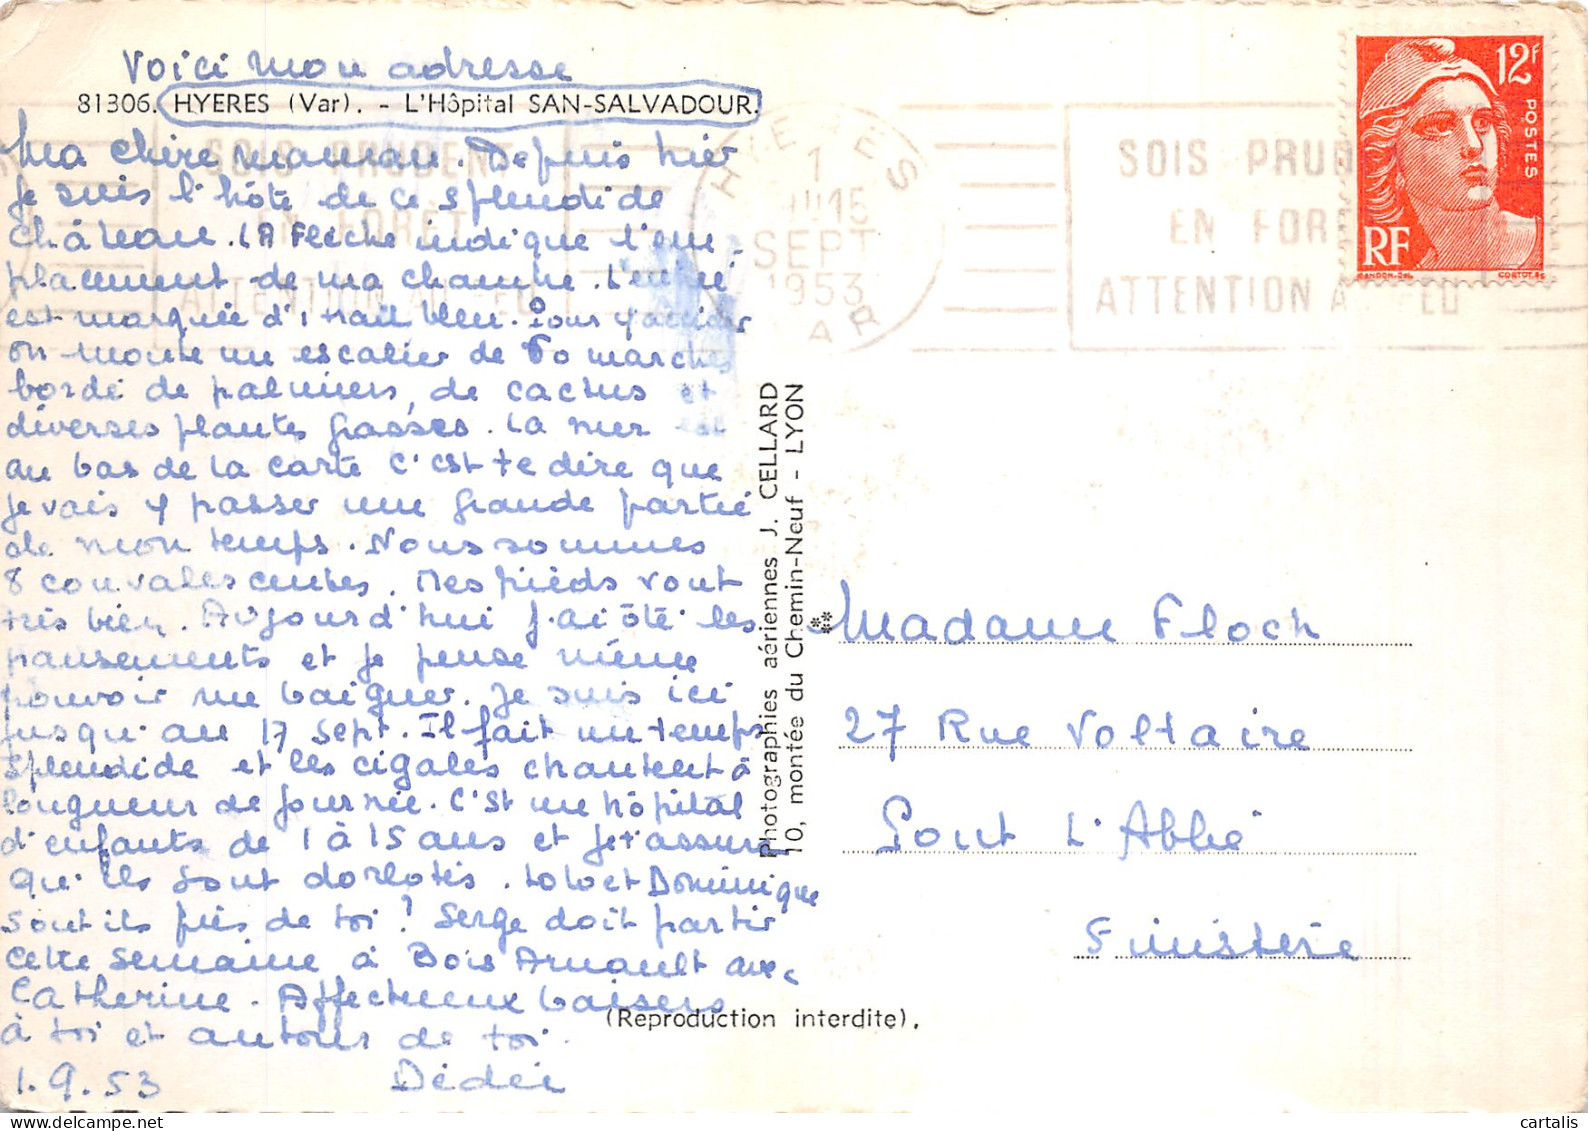 Voici mon adresse
81306. HYERES (Var). - L'Hôpital SAN-SALVADOUR.
Ma chère maman. Depuis hier
je suis l'hôte de ce splendide
château. La flèche indique l'em-
placement de ma chambre. L'entrée
est marquée d'1 trait bleu. Pour y accéder
on monte un escalier de 60 marches
bordé de palmiers, de cactus et
diverses plantes grasses. La mer est
au bas de la carte c'est te dire que
je vais y passer une grande partie
de mon temps. Nous sommes
8 convalescentes. Mes pieds vont
très bien. Aujourd'hui j'ai ôté les
pansements et je pense même
pouvoir me baigner. Je suis ici
jusqu'au 17 sept. Il fait un temps
splendide et les cigales chantent à
longueur de journée. C'st un hôpital
d'enfants de 1 à 15 ans et je t'assure
qu'ils sont dorlotés. Lolo et Dominique
sont ils près de toi ? Serge doit partir
cette semaine à Bois Arnault avec
Catherine. Affectueux baisers
à toi et autour de toi.
1.9.53 Dédée
Photographies aériennes J. CELLARD
10, montée du Chemin-Neuf - LYON
(Reproduction interdite).
HYERES
1
15
SEPT
1953
VAR
SOIS PRUDENT
EN FORÊT
ATTENTION AU FEU
SOIS PRUD
EN FORE
ATTENTION A FEU
12F
POSTES
RF
GANDON-DEL. CORTOT.SC
Madame Floch
27 Rue Voltaire
Pont L'Abbé
Finistère
cartalis